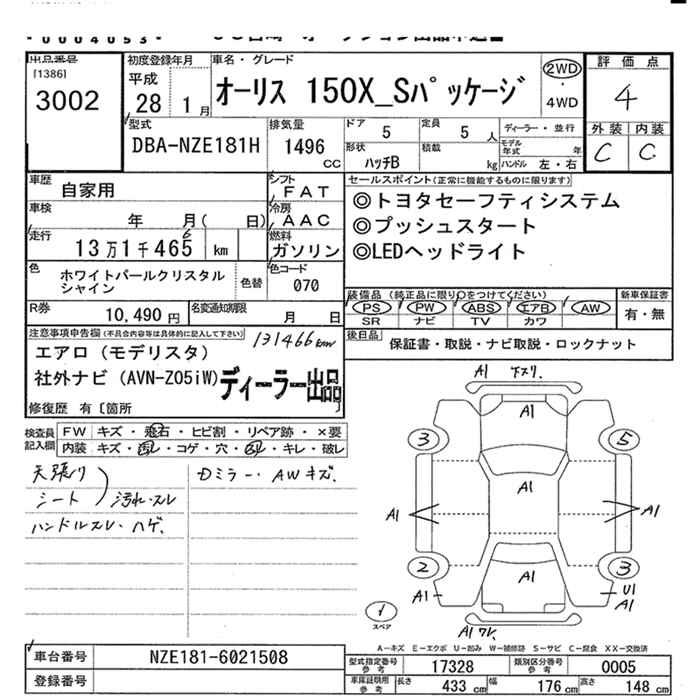 0004053
出品番号
[1386]
3002
初度登録年月
平成
28 1月
車名・グレード
オーリス 150X_Sパッケージ
2WD
・
4WD
評価点
4
外装 内装
C C
型式
DBA-NZE181H
排気量
1496
CC
ドア 5
定員 5 人
形状 ハッチB
積載 kg
ディーラー・並行
モデル年式 年
ハンドル 左・右
車歴 自家用
シフト FAT
車検 年 月( 日)
冷房 AAC
走行 13万1千465 km
6
燃料 ガソリン
色 ホワイトパールクリスタル
シャイン
色替
色コード 070
R券 10,490円
名変通知期限 月 日
セールスポイント(正常に機能するものに限ります)
◎トヨタセーフティシステム
◎プッシュスタート
◎LEDヘッドライト
装備品 (純正品に限り○をつけてください)
PS PW ABS エアB AW
SR ナビ TV カワ
新車保証書
有・無
後日品 保証書・取説・ナビ取説・ロックナット
注意事項申告欄 (不具合内容等は具体的に記入して下さい)
131466km
エアロ (モデリスタ)
社外ナビ (AVN-Z05iW)
ディーラー出品
修復歴 有〔箇所
検査員
記入欄
FW キズ・飛石・ヒビ割・リペア跡・×要
内装 キズ・汚れ・コゲ・穴・スレ・キレ・破レ
天張り
シート
汚れ・スレ
ハンドルスレ・ハゲ.
Dミラー・AWキズ.
A1 下スリ.
A1
3 5
A1
A1 A1
2 3
A1
A1 U1
A1
1
スペア
A1 ワレ.
A-キズ E-エクボ U-凹み W-補修跡 S-サビ C-腐食 XX-交換済
車台番号 NZE181-6021508
登録番号
型式指定番号
参考
17328
類別区分番号
参考
0005
車庫証明用
参考
長さ 433 cm
幅 176 cm
高さ 148 cm